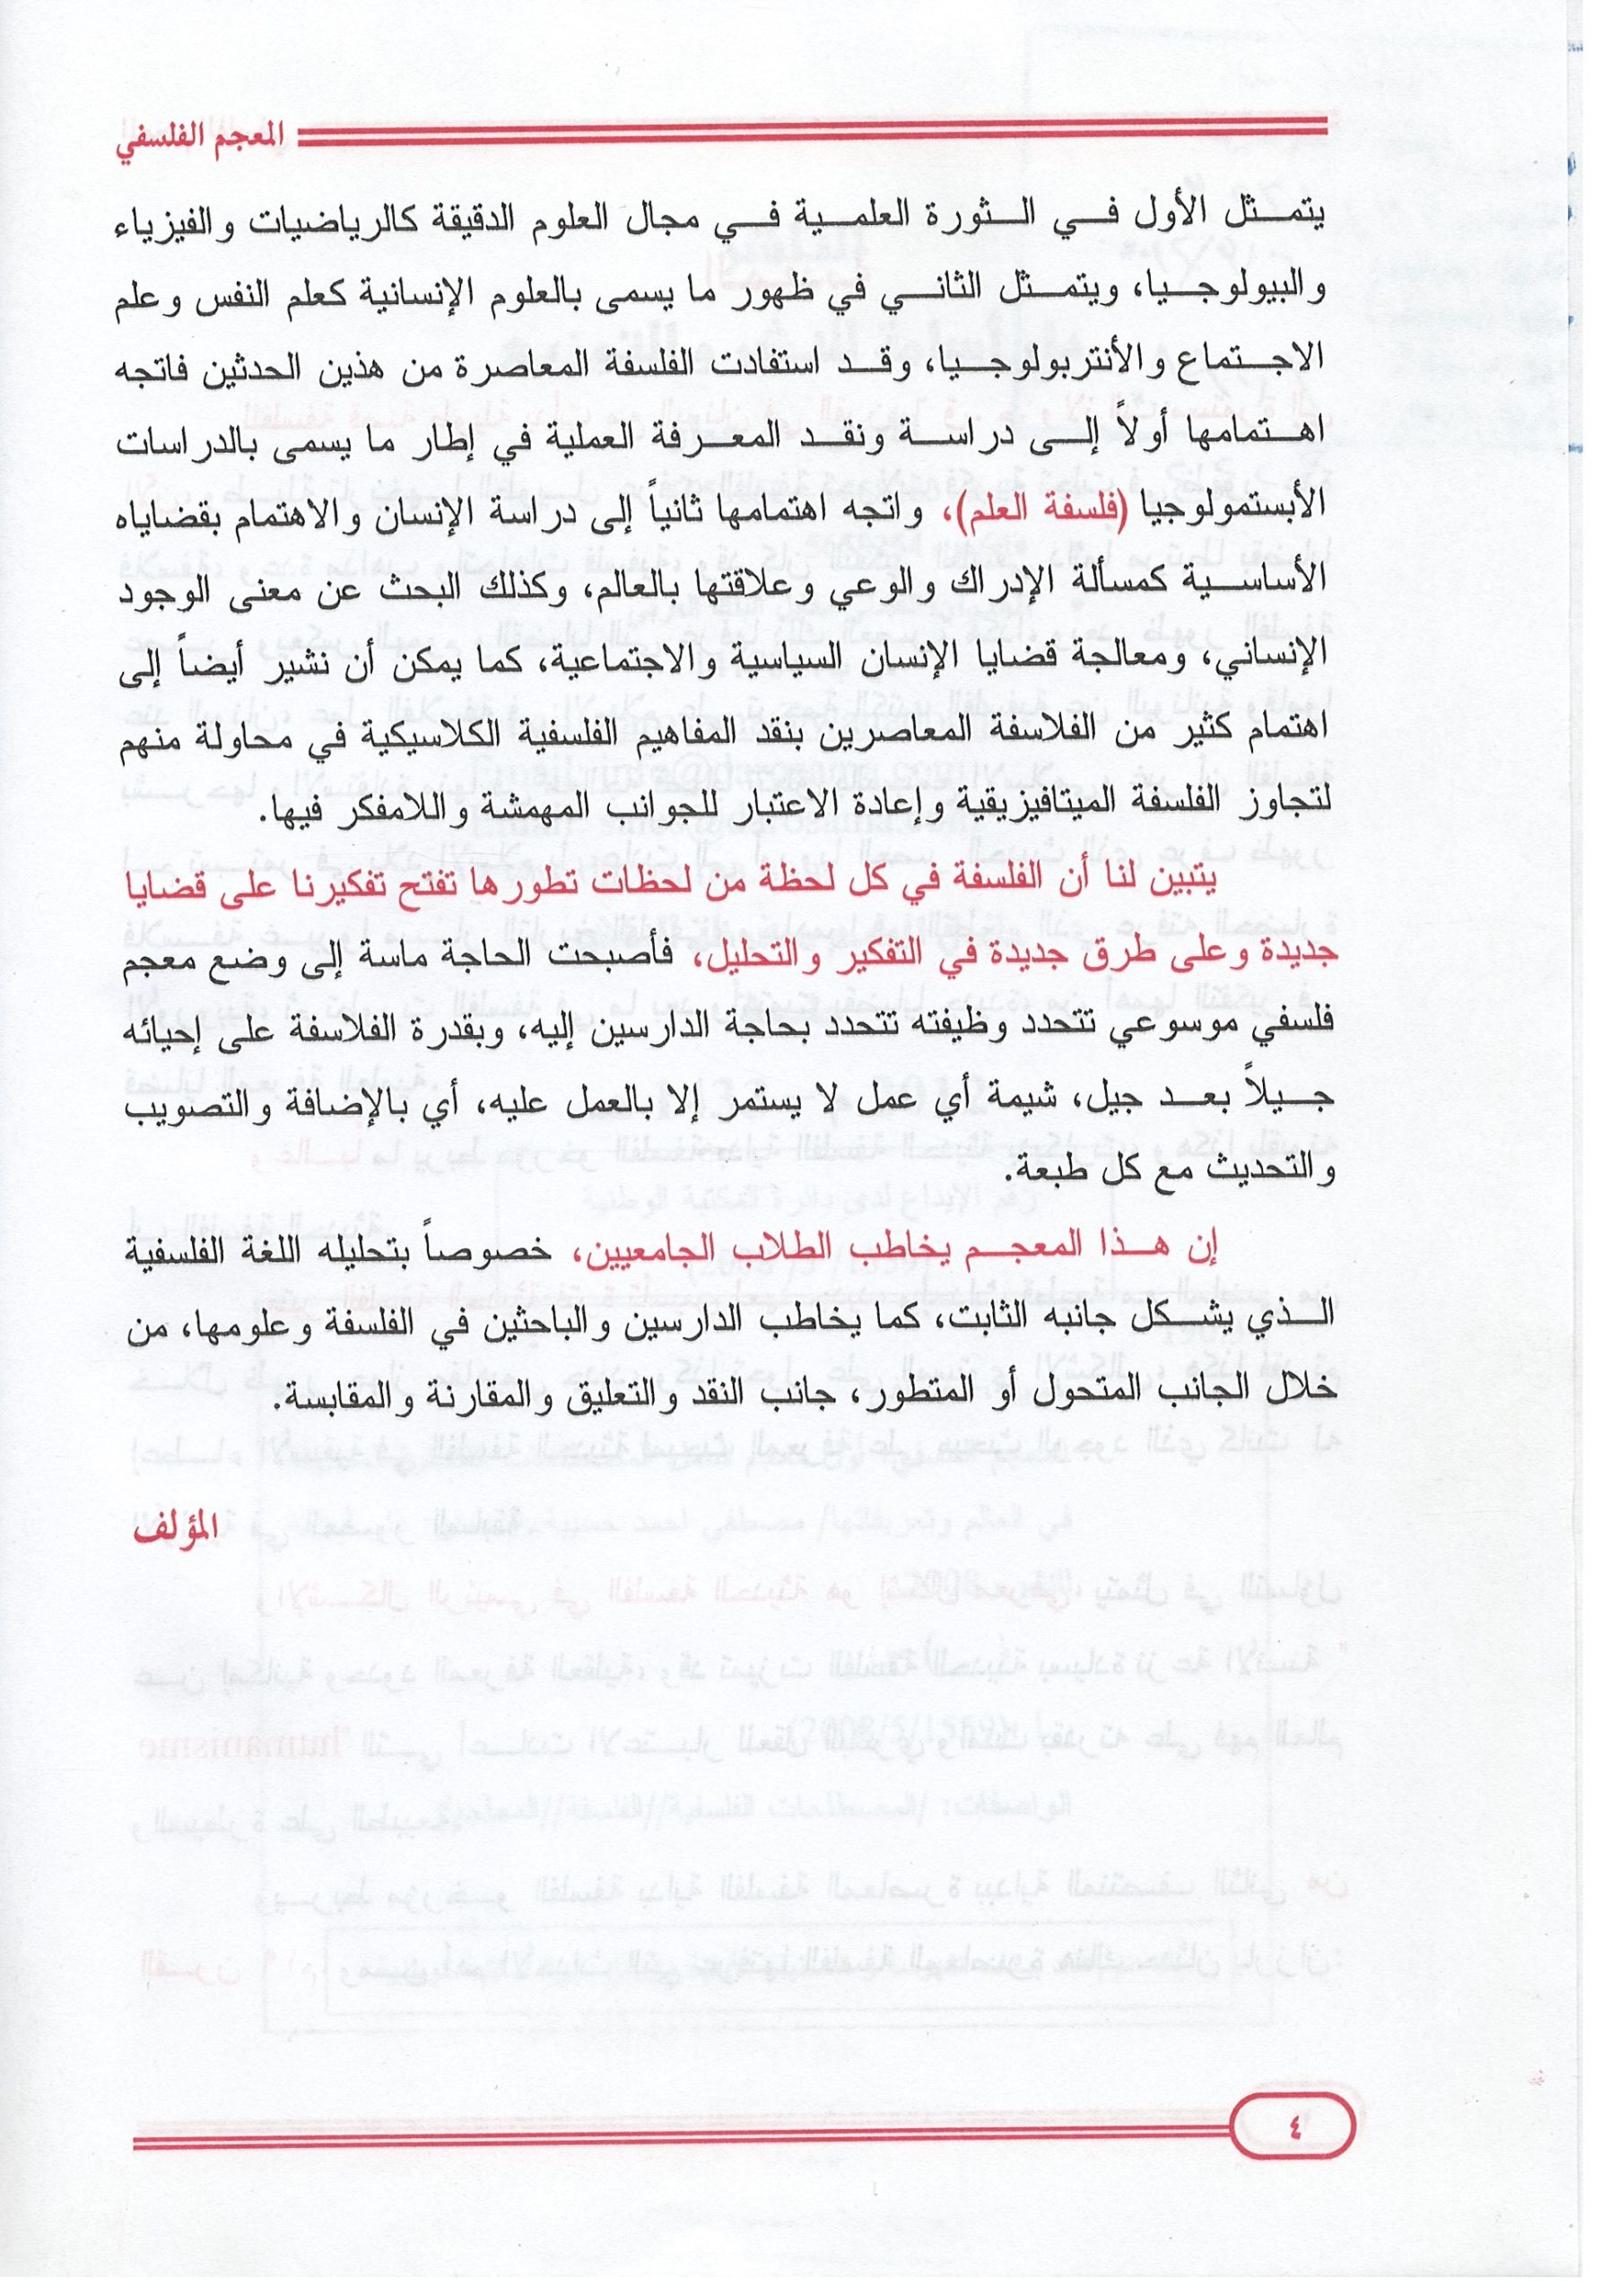 المعجم الفلسفي
يتمثل الأول في الثورة العلمية في مجال العلوم الدقيقة كالرياضيات والفيزياء
والبيولوجيا، ويتمثل الثاني في ظهور ما يسمى بالعلوم الإنسانية كعلم النفس وعلم
الاجتماع والأنتربولوجيا، وقد استفادت الفلسفة المعاصرة من هذين الحدثين فاتجه
اهتمامها أولاً إلى دراسة ونقد المعرفة العملية في إطار ما يسمى بالدراسات
الأبستمولوجيا (فلسفة العلم)، واتجه اهتمامها ثانياً إلى دراسة الإنسان والاهتمام بقضاياه
الأساسية كمسألة الإدراك والوعي وعلاقتها بالعالم، وكذلك البحث عن معنى الوجود
الإنساني، ومعالجة قضايا الإنسان السياسية والاجتماعية، كما يمكن أن نشير أيضاً إلى
اهتمام كثير من الفلاسفة المعاصرين بنقد المفاهيم الفلسفية الكلاسيكية في محاولة منهم
لتجاوز الفلسفة الميتافيزيقية وإعادة الاعتبار للجوانب المهمشة واللامفكر فيها.
يتبين لنا أن الفلسفة في كل لحظة من لحظات تطورها تفتح تفكيرنا على قضايا
جديدة وعلى طرق جديدة في التفكير والتحليل، فأصبحت الحاجة ماسة إلى وضع معجم
فلسفي موسوعي تتحدد وظيفته تتحدد بحاجة الدارسين إليه، وبقدرة الفلاسفة على إحيائه
جيلاً بعد جيل، شيمة أي عمل لا يستمر إلا بالعمل عليه، أي بالإضافة والتصويب
والتحديث مع كل طبعة.
إن هذا المعجم يخاطب الطلاب الجامعيين، خصوصاً بتحليله اللغة الفلسفية
الذي يشكل جانبه الثابت، كما يخاطب الدارسين والباحثين في الفلسفة وعلومها، من
خلال الجانب المتحول أو المتطور، جانب النقد والتعليق والمقارنة والمقابسة.
المؤلف
٤